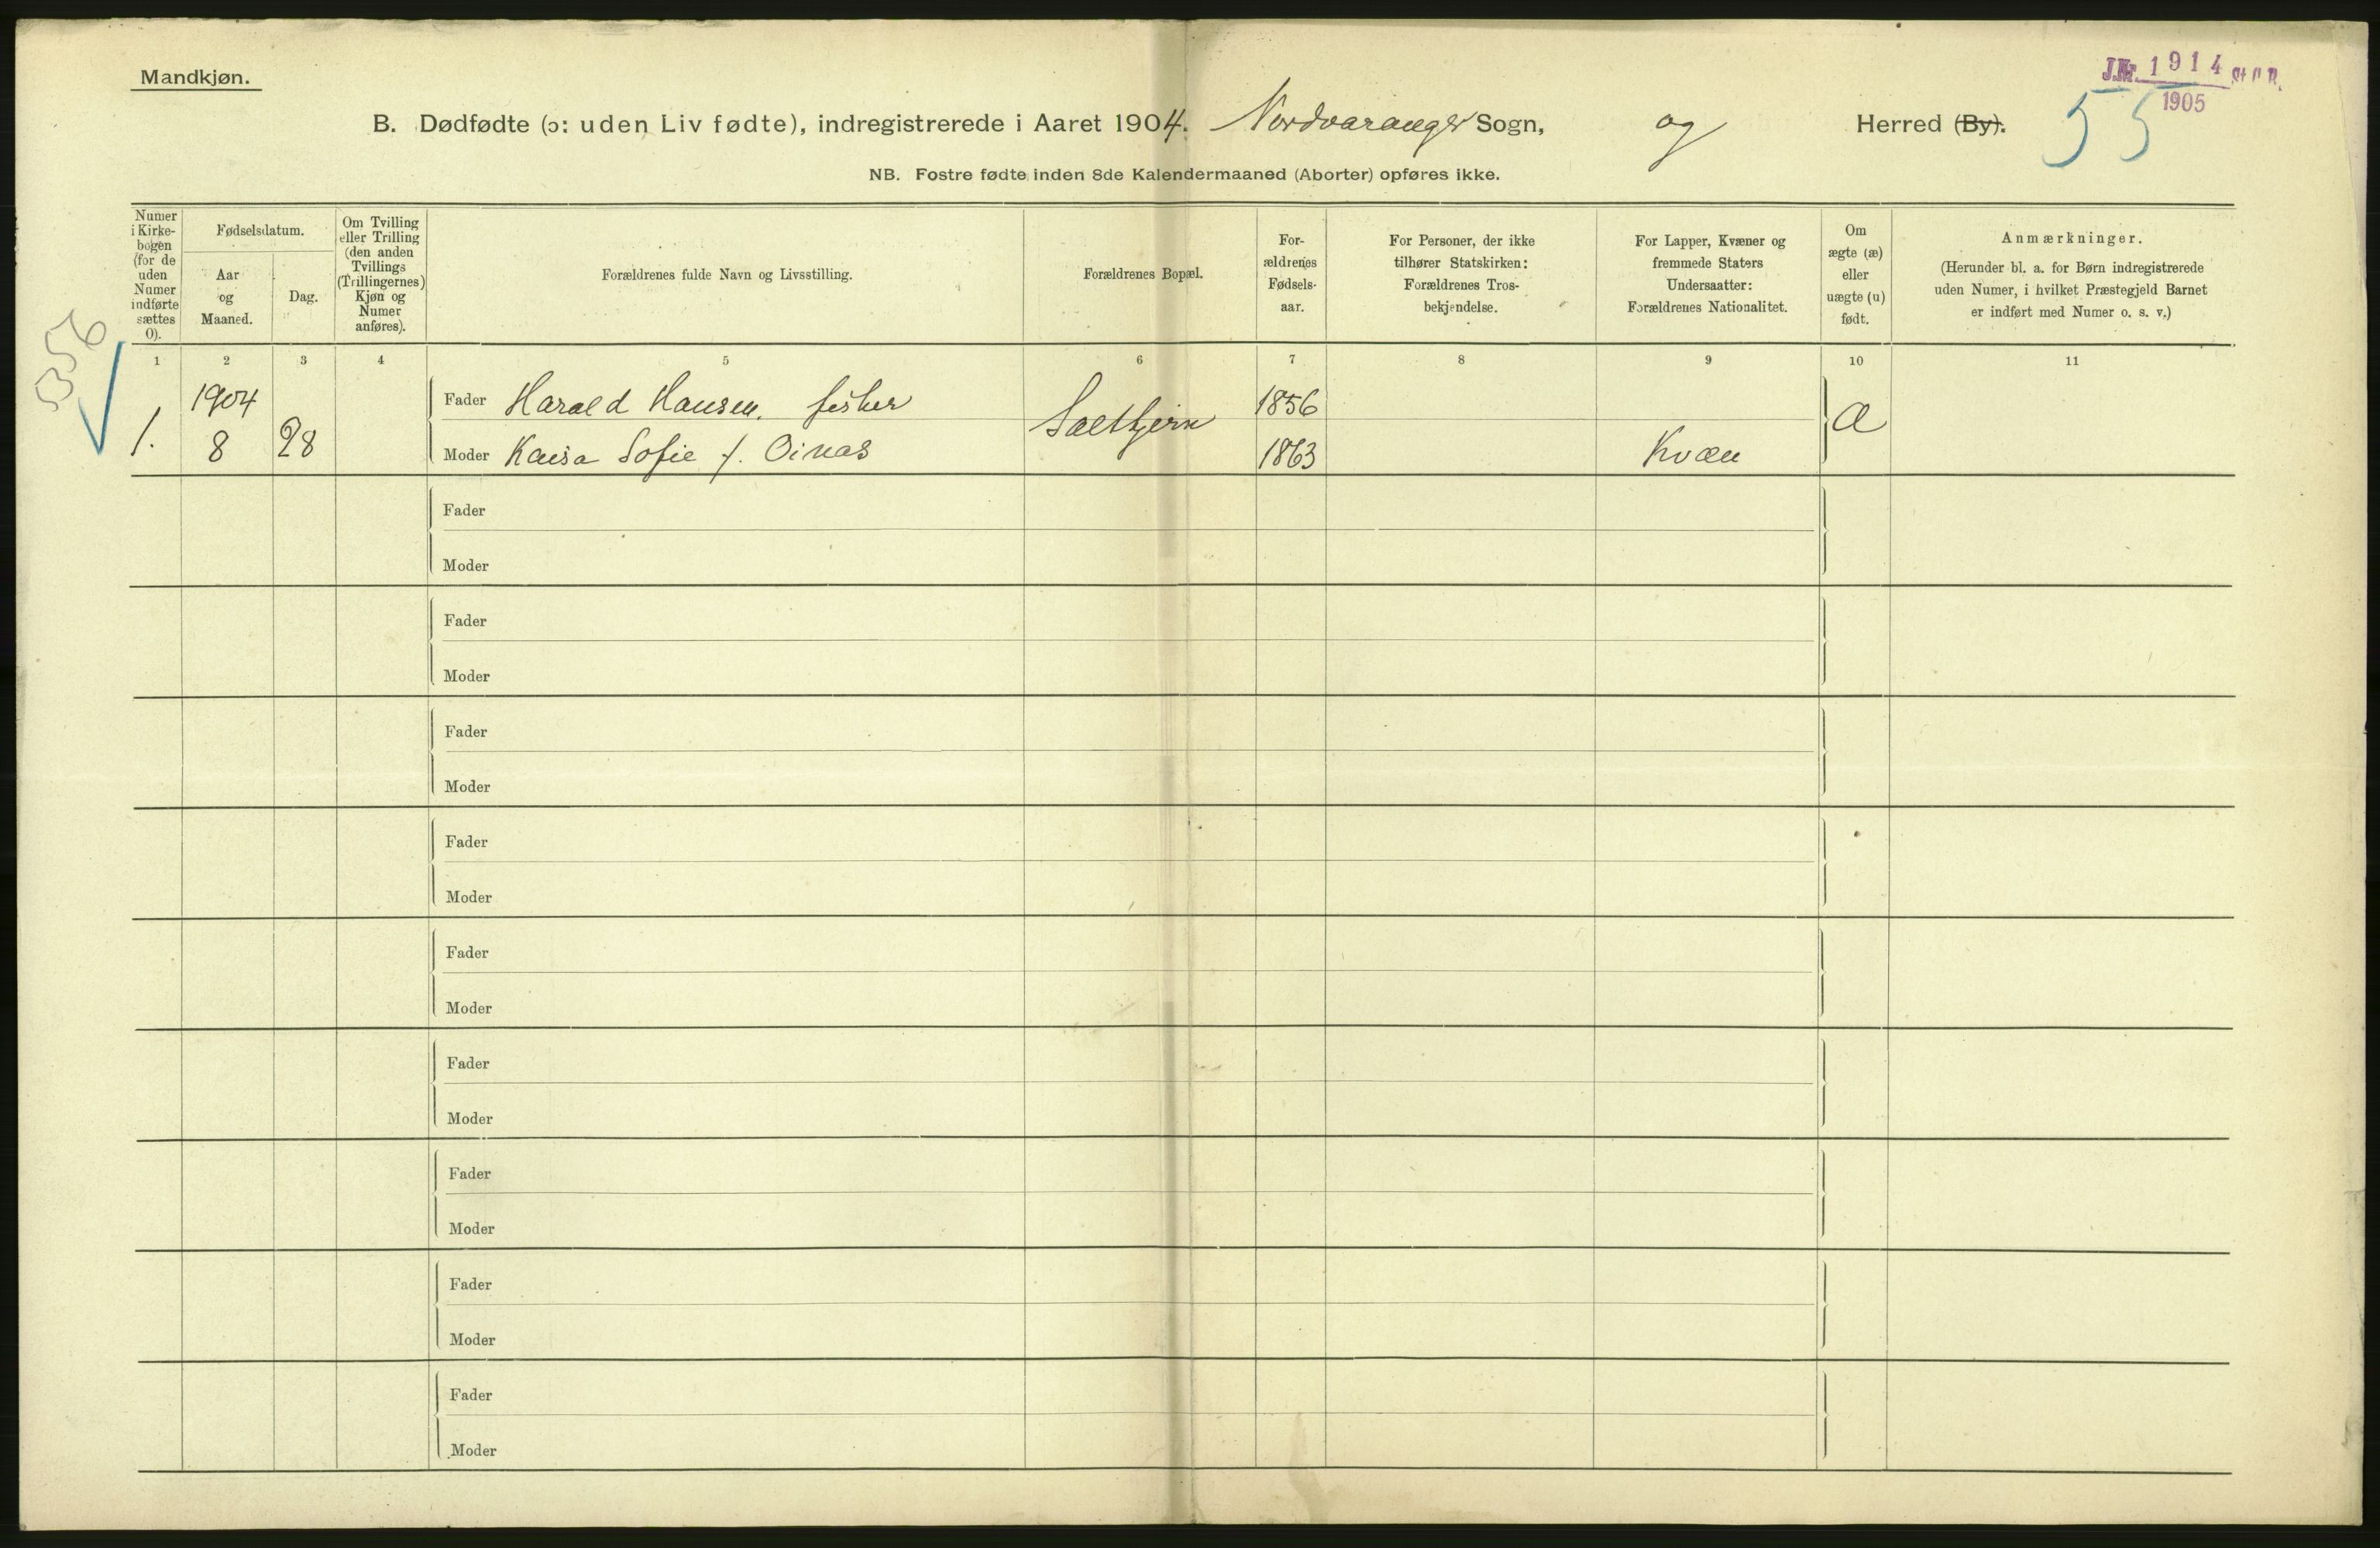 Mandkjøn.
J.Nr. 1914
1905
55
B. Dødfødte (ɔ: uden Liv fødte), indregistrerede i Aaret 1904. Nordvaranger Sogn, og Herred (By).
NB. Fostre fødte inden 8de Kalendermaaned (Aborter) opføres ikke.
Numer
i Kirke-
bogen
(for de
uden
Numer
indførte
sættes
0).
Fødselsdatum.
Aar
og
Maaned.
Dag.
Om Tvilling
eller Trilling
(den anden
Tvillings
(Trillingernes)
Kjøn og
Numer
anføres).
Forældrenes fulde Navn og Livsstilling.
Forældrenes Bopæl.
For-
ældrenes
Fødsels-
aar.
For Personer, der ikke
tilhører Statskirken:
Forældrenes Tros-
bekjendelse.
For Lapper, Kvæner og
fremmede Staters
Undersaatter:
Forældrenes Nationalitet.
Om
ægte (æ)
eller
uægte (u)
født.
Anmærkninger.
(Herunder bl. a. for Børn indregistrerede
uden Numer, i hvilket Præstegjeld Barnet
er indført med Numer o. s. v.)
1 2 3 4 5 6 7 8 9 10 11
356
1.
1904
8 28
Fader Harald Hansen, fisker
Moder Kaisa Sofie f. Oinas
Saltjern
1856
1863
Kvæn
æ
Fader
Moder
Fader
Moder
Fader
Moder
Fader
Moder
Fader
Moder
Fader
Moder
Fader
Moder
Fader
Moder
Fader
Moder